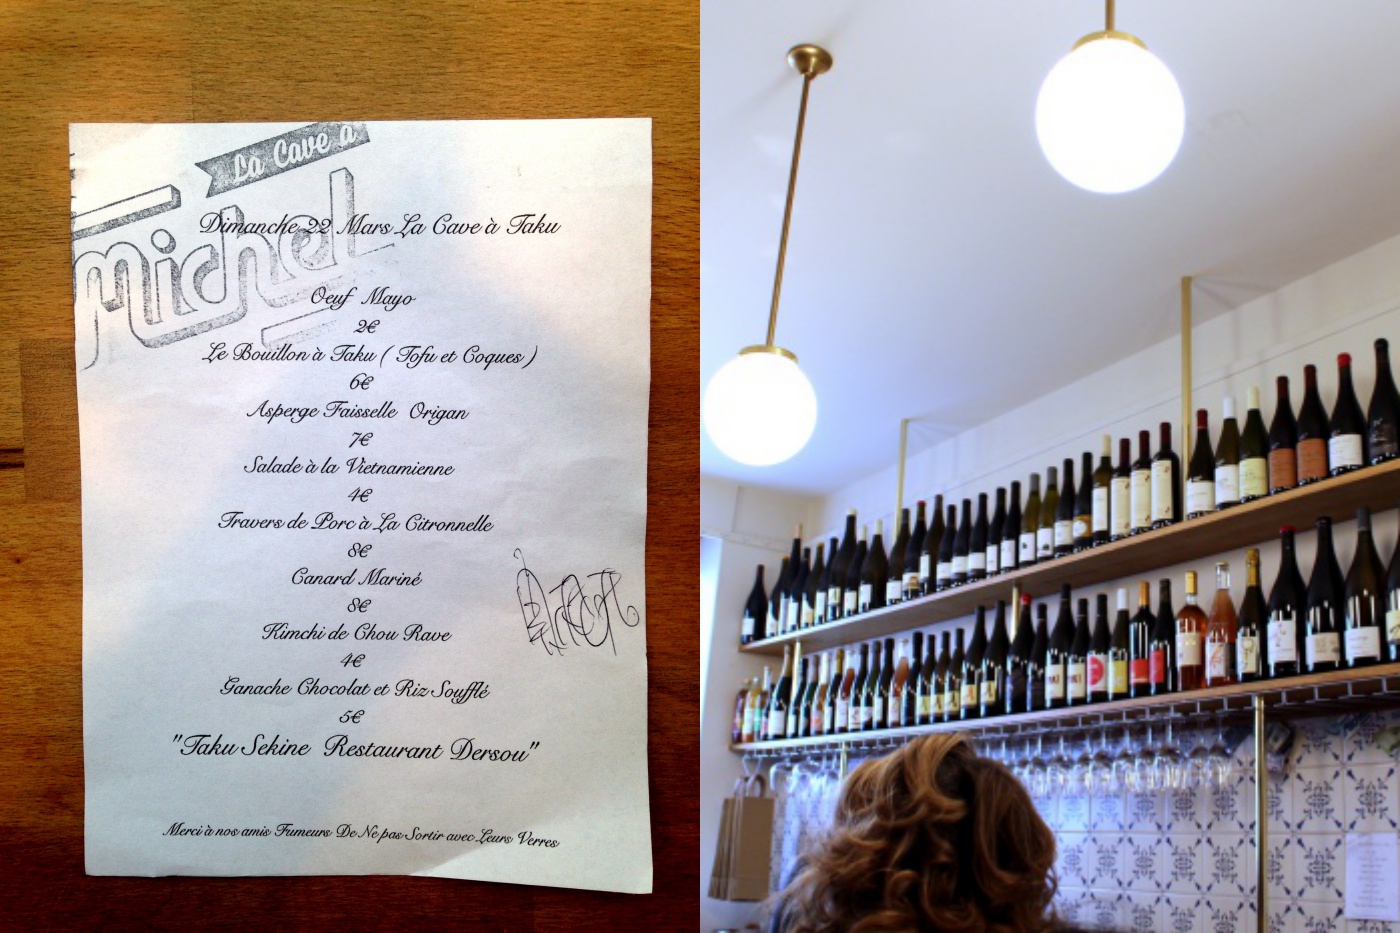 La Cave à
Michel
Dimanche 22 Mars La Cave à Taku
Oeuf Mayo
2€
Le Bouillon à Taku ( Tofu et Coques )
6€
Asperge Faisselle Origan
7€
Salade à la Vietnamienne
4€
Travers de Porc à La Citronnelle
8€
Canard Mariné
8€
Kimchi de Chou Rave
4€
Ganache Chocolat et Riz Soufflé
5€
"Taku Sekine Restaurant Dersou"
Merci à nos amis Fumeurs De Ne pas Sortir avec Leurs Verres